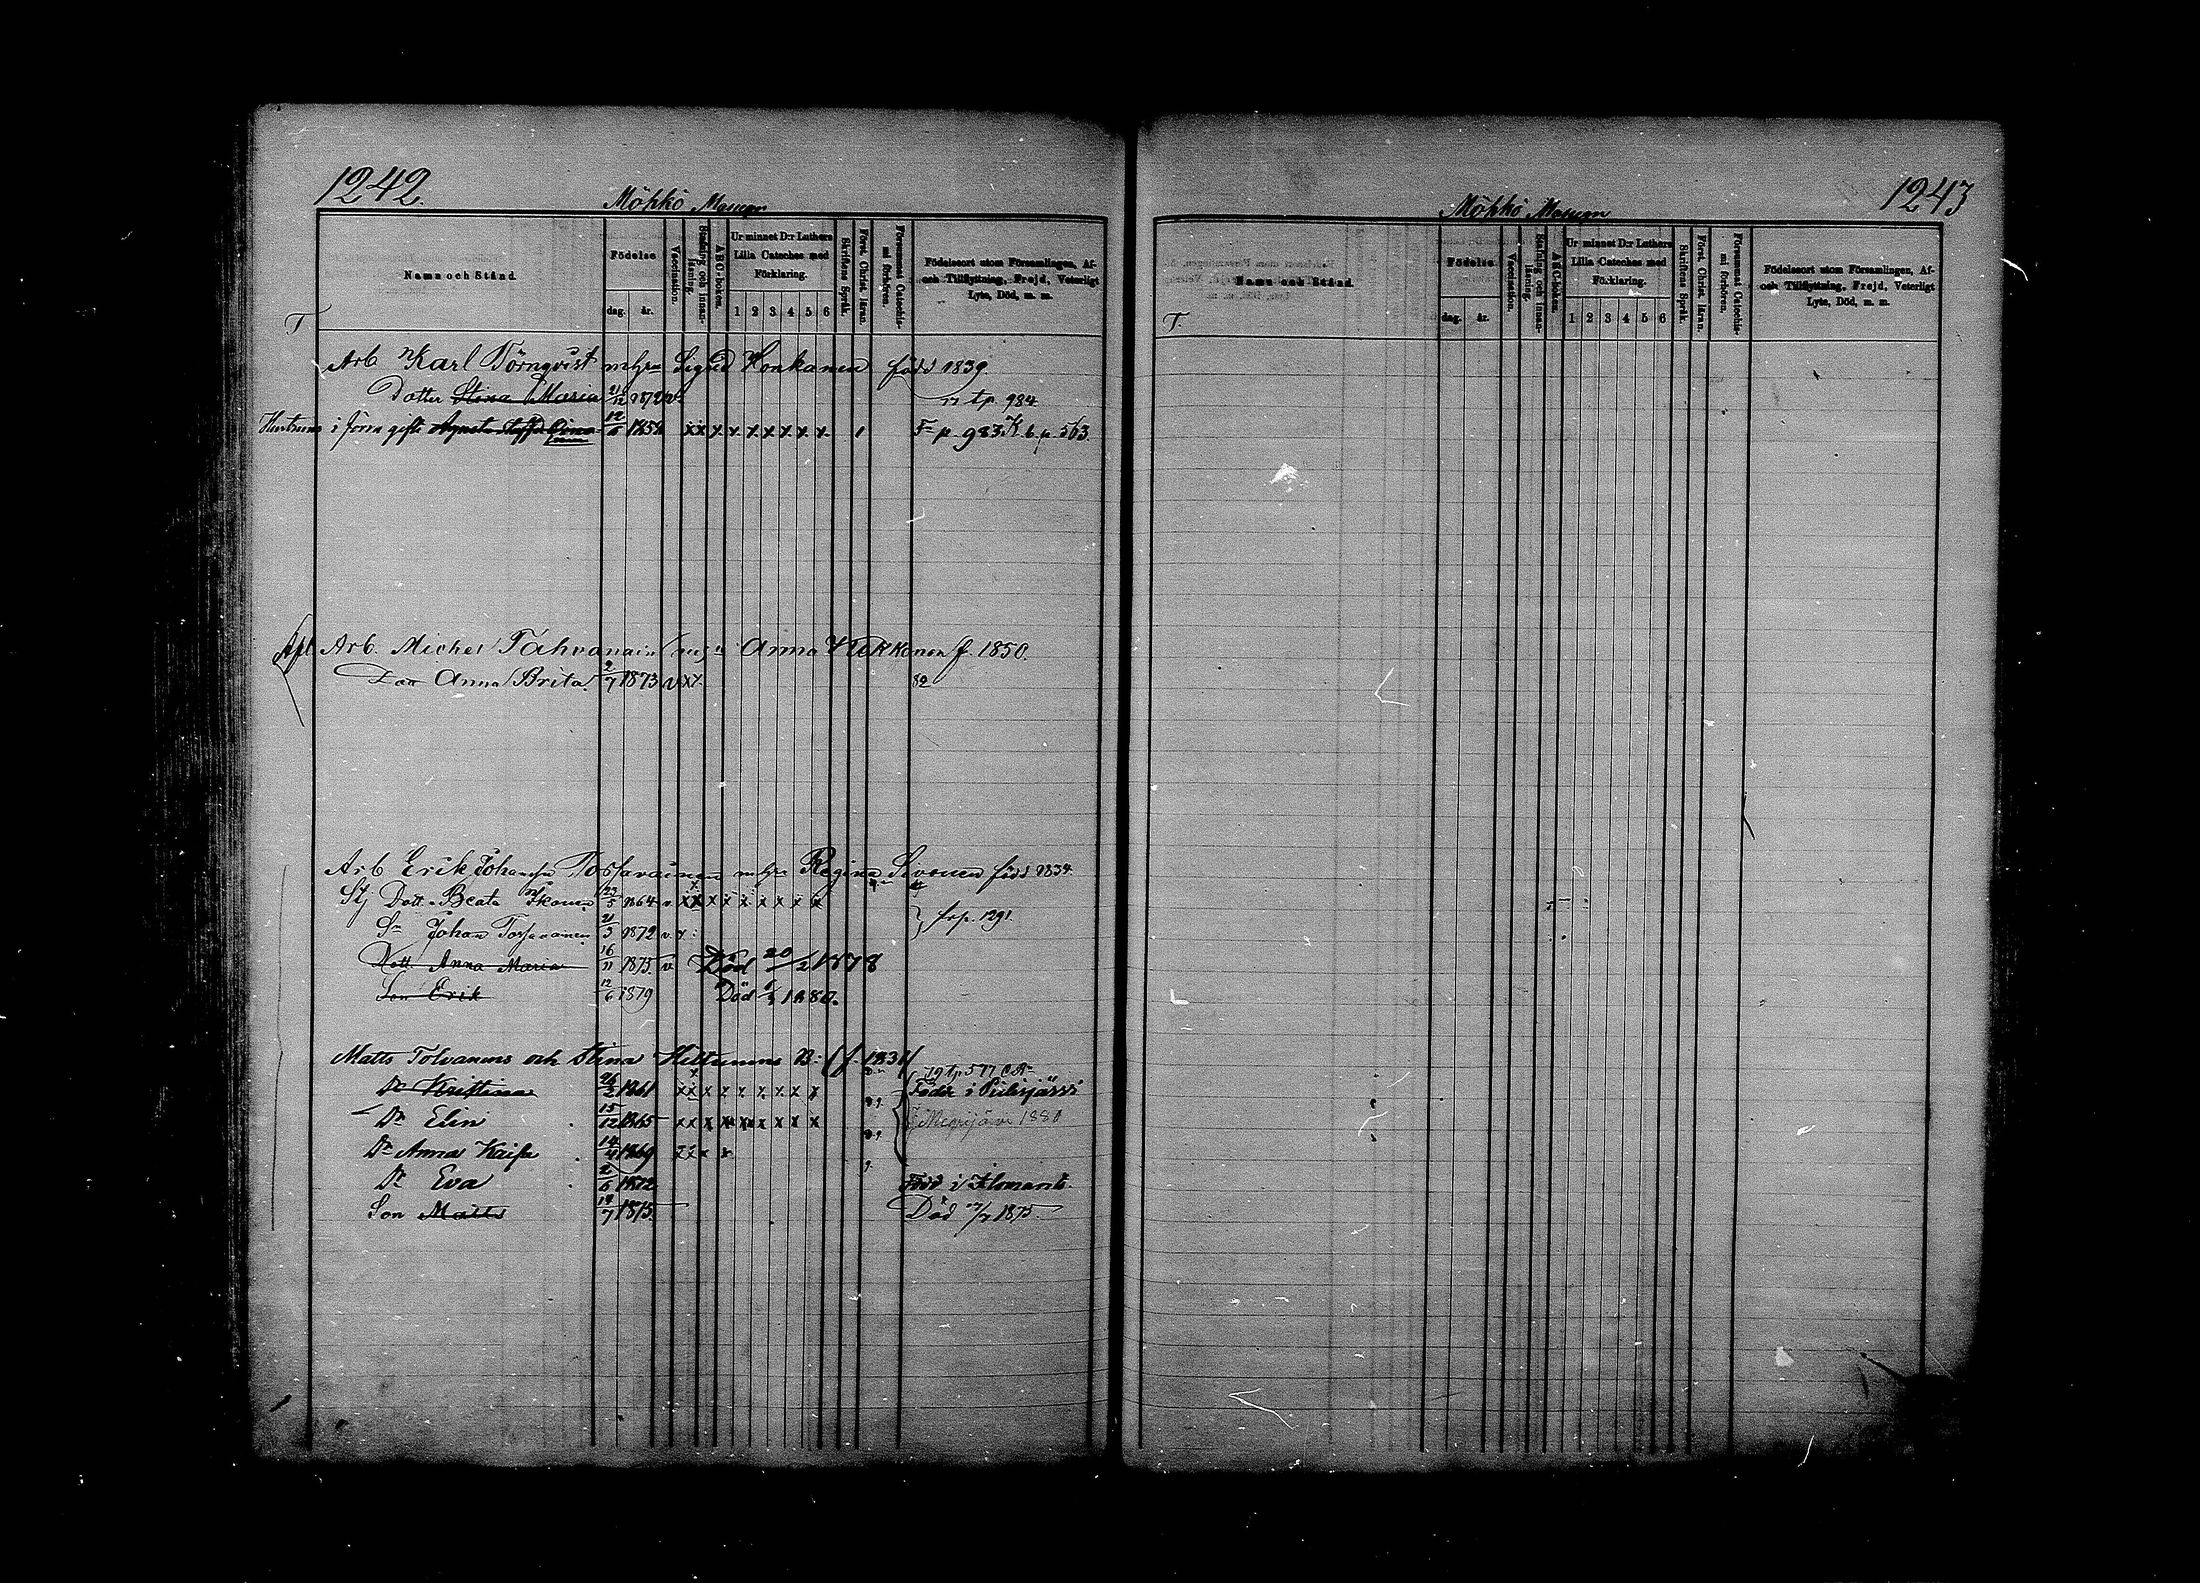 1242.
Möhkö Masugn
Namn och Stånd.
Födelse
dag. år.
Vaccination.
Stafning och innanläsning.
ABC-boken.
Ur minnet D:r Luthers Lilla Cateches med Förklaring.
1 2 3 4 5 6
Skriftens Språk.
Först. Christ. läran.
Försummat Catechismi förhören.
Födelseort utom Församlingen, Af- och Tillflyttning, Frejd, Veterligt Lyte, Död, m. m.
T
Arb Karl Törnqvist m hru Sigrid Honkanen född 1839
Dotter Stina Maria 1872 v tp. 984
Hustrun i förra gifte Agneta 12/6 x x x x x x x x x F p. 983 K. b. p. 563.
Arb. Michel Tahvanain Anna f. 1850.
Dott Anna Brita 2/7 1873 v x x 82
Arb Erik Johansn Tossavainen m hru Regina Sivonen född 1834
Stj Dott. Beata 23/5 1864 v x x x x x x x x x
Sn Johan Tossavanen 21/3 1872 v x frp. 1291.
Dott Anna Maria 16/11 1875 v Död 20/2 1878
Son Erik 12/6 1879 Död 1880.
Matts Tolvanens och Stina Hiltunens B: (f. 1831)
Dr Kristina 26/2 1861 x x x x x x x x x Född i Pielisjärvi
Dr Elin 15/12 1865 x x x x x x x x x 1880
Dr Anna Kaisa 14/4 1869 x x x x
Dr Eva 2/6 1872 Född i Ilomants.
Son Matts 14/7 1875 Död 1875.
1243
Möhkö Masugn
Namn och Stånd.
Födelse
dag. år.
Vaccination.
Stafning och innanläsning.
ABC-boken.
Ur minnet D:r Luthers Lilla Cateches med Förklaring.
1 2 3 4 5 6
Skriftens Språk.
Först. Christ. läran.
Försummat Catechismi förhören.
Födelseort utom Församlingen, Af- och Tillflyttning, Frejd, Veterligt Lyte, Död, m. m.
T.